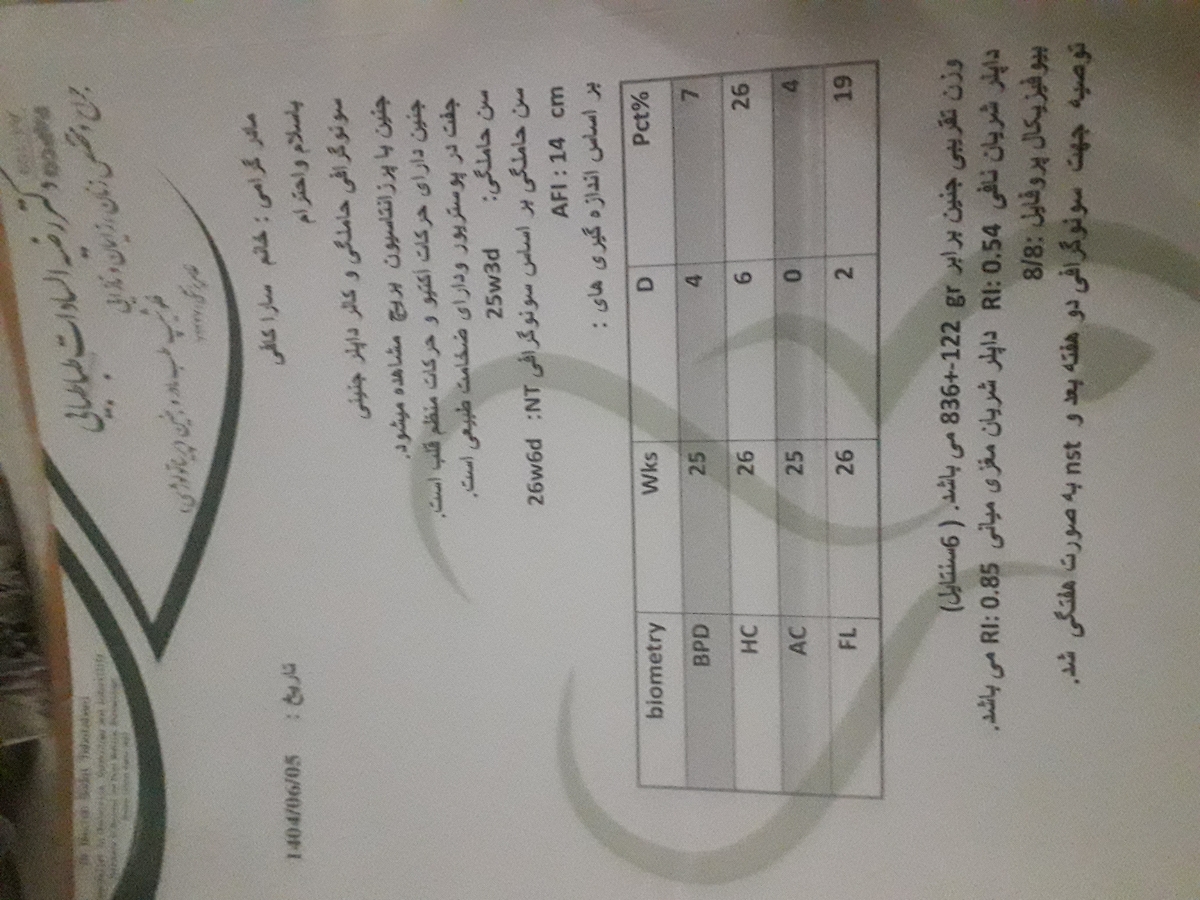 دکتر رضیه السادات طباطبائی
جراح و متخصص زنان، زایمان و نازایی
فلوشیپ طب مادر و جنین (پریناتولوژی)
تاریخ : 1404/06/05
مادر گرامی : خانم سارا کافی
باسلام و احترام
سونوگرافی حاملگی و کالر داپلر جنینی
جنین با پرزانتاسیون بریچ مشاهده میشود.
جنین دارای حرکات اکتیو و حرکات منظم قلب است.
جفت در پوستریور ودارای ضخامت طبیعی است.
سن حاملگی: 25w3d
سن حاملگی بر اساس سونوگرافی NT: 26w6d
AFI : 14 cm
بر اساس اندازه گیری های :
biometry Wks D Pct%
BPD 25 4 7
HC 26 6 26
AC 25 0 4
FL 26 2 19
وزن تقریبی جنین برابر gr 836+-122 می باشد. ( 6سنتایل)
داپلر شریان نافی RI: 0.54 داپلر شریان مغزی میانی RI: 0.85 می باشد.
بیوفیزیکال پروفایل :8/8
توصیه جهت سونوگرافی دو هفته بعد و nst به صورت هفتگی شد.